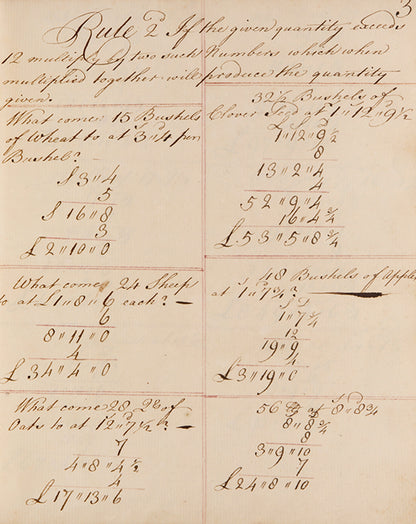 3
Rule 2d If the given quantity exceeds
12 multiply by two such Numbers which when
multiplied together will produce the quantity
given.
What come 15 Bushels
of Wheat to at 3"4 per
Bushel?
S 3"4
5
S 16"8
3
£ 2"10"0
What come 24 Sheep
to at £1"8"6 each?
6
8"11"0
4
£ 34"4"0
What come 28 of
Oats to at 12"7½ ?
7
4"8"4½
4
£ 17"13"6
32½ Bushels of
Clover Seed at 1"12"9½
1"12"9½
8
13"2"4
4
52"9"4
16"4¾
£ 53"5"8¾
48 Bushels of Apples
at 1"7¾ ?
1"7¾
12
19"9
4
£ 3"19"0
56 at 8"8¾
8"8¾
8
3"9"10
7
£ 24"8"10